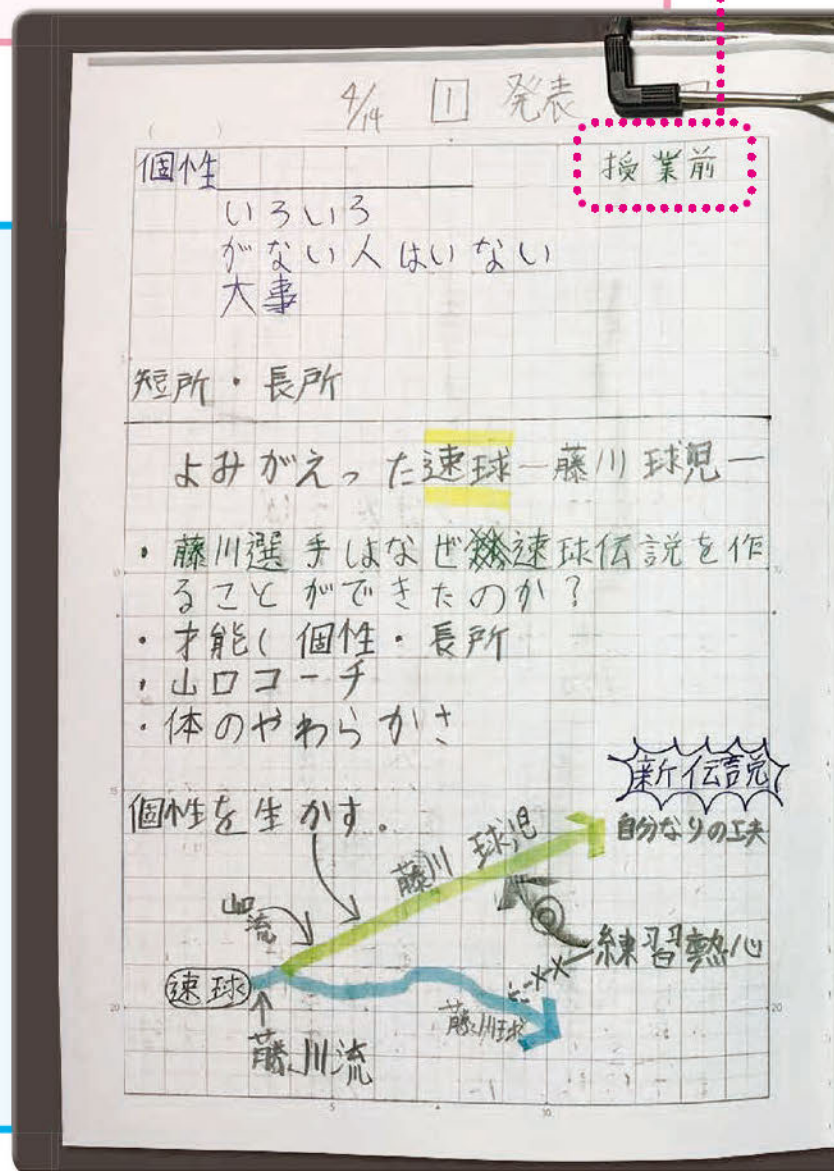 4/14 1 発表
( )
個性
授業前
いろいろ
がない人はいない
大事
短所・長所
よみがえった速球―藤川球児―
・藤川選手はなぜ速球伝説を作
ることができたのか?
・才能(個性・長所
・山口コーチ
・体のやわらかさ
新伝説
個性を生かす。
自分なりの工夫
藤川球児
山口流
練習熱心
速球
藤川球
藤川流
5
10
15
20
5
10
20